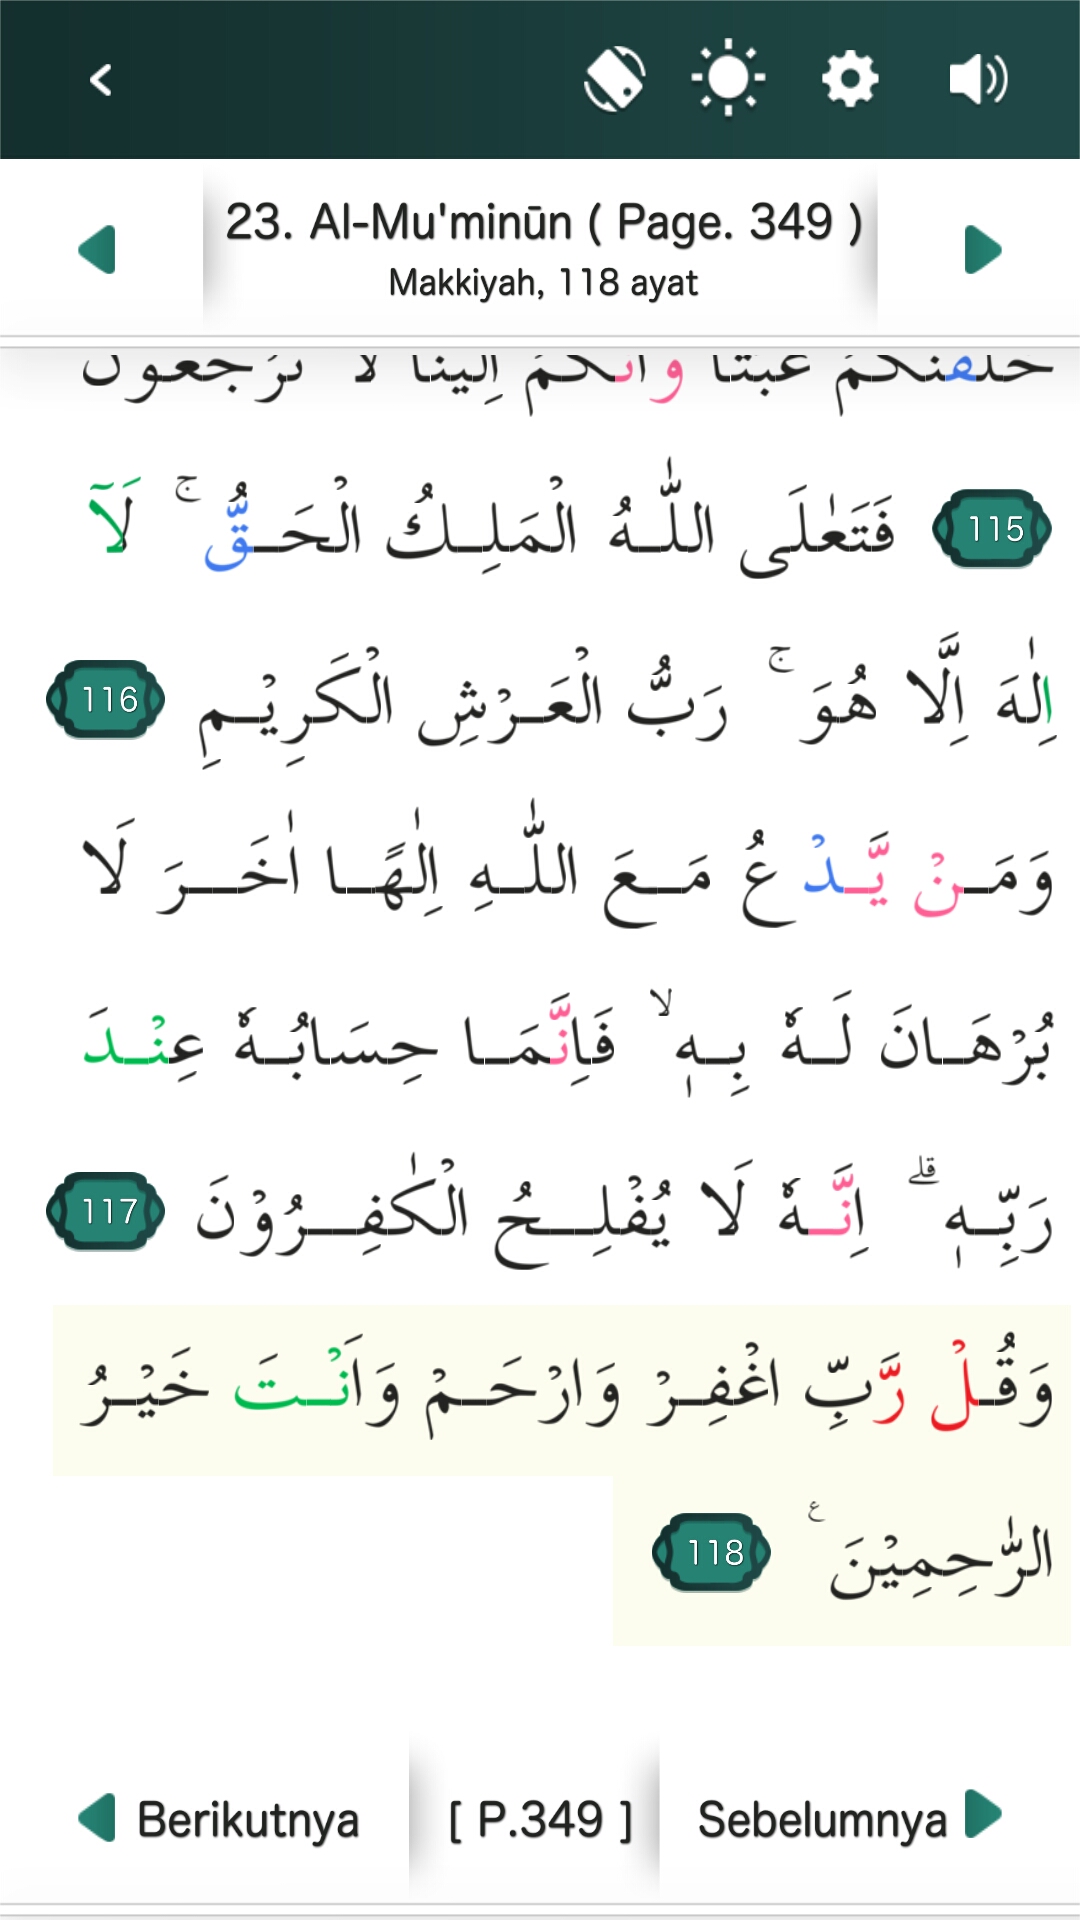 23. Al-Mu'minūn ( Page. 349 )
Makkiyah, 118 ayat
خَلَقْنٰكُمْ عَبَثًا وَّاَنَّكُمْ اِلَيْنَا لَا تُرْجَعُوْنَ
115 فَتَعٰلَى اللّٰهُ الْمَلِكُ الْحَقُّ ۚ لَآ
اِلٰهَ اِلَّا هُوَ ۚ رَبُّ الْعَرْشِ الْكَرِيْمِ 116
وَمَنْ يَّدْعُ مَعَ اللّٰهِ اِلٰهًا اٰخَرَ لَا
بُرْهَانَ لَهٗ بِهٖ ۙ فَاِنَّمَا حِسَابُهٗ عِنْدَ
رَبِّهٖ ۗ اِنَّهٗ لَا يُفْلِحُ الْكٰفِرُوْنَ 117
وَقُلْ رَّبِّ اغْفِرْ وَارْحَمْ وَاَنْتَ خَيْرُ
الرّٰحِمِيْنَ ࣖ 118
Berikutnya [ P.349 ] Sebelumnya